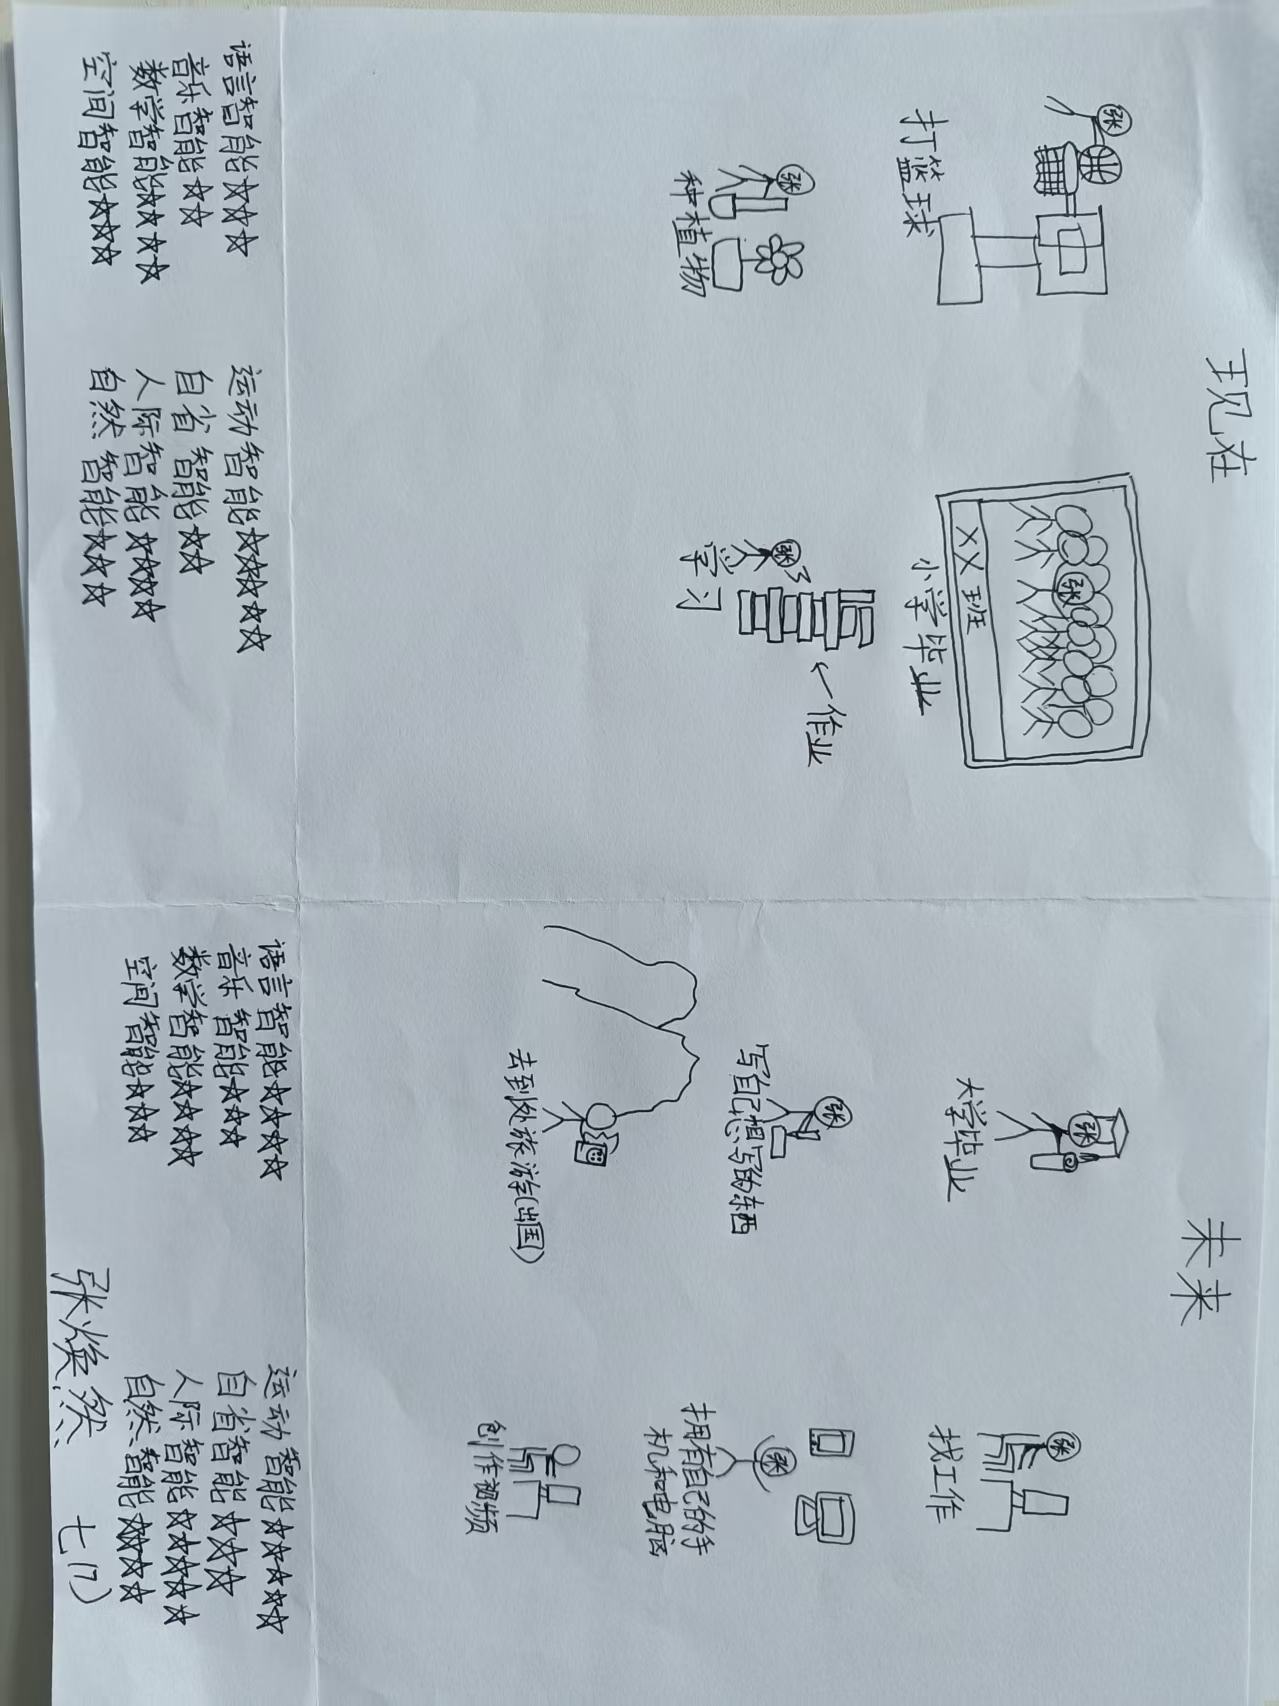 现在
张
打篮球
张
XX班
小学毕业
张
种植物
张
学习
←作业
语言智能☆☆☆
音乐智能☆☆
数学智能☆☆☆☆
空间智能☆☆☆
运动智能☆☆☆☆☆
自省智能☆☆
人际智能☆☆☆☆
自然智能☆☆☆
未来
张
大学毕业
张
找工作
张
写自己想写的东西
张
拥有自己的手
机和电脑
去到处旅游(出国)
创作视频
语言智能☆☆☆☆
音乐智能☆☆☆
数学智能☆☆☆☆
空间智能☆☆☆
运动智能☆☆☆☆☆
自省智能☆☆☆
人际智能☆☆☆☆
自然智能☆☆☆☆
张焕然 七(7)